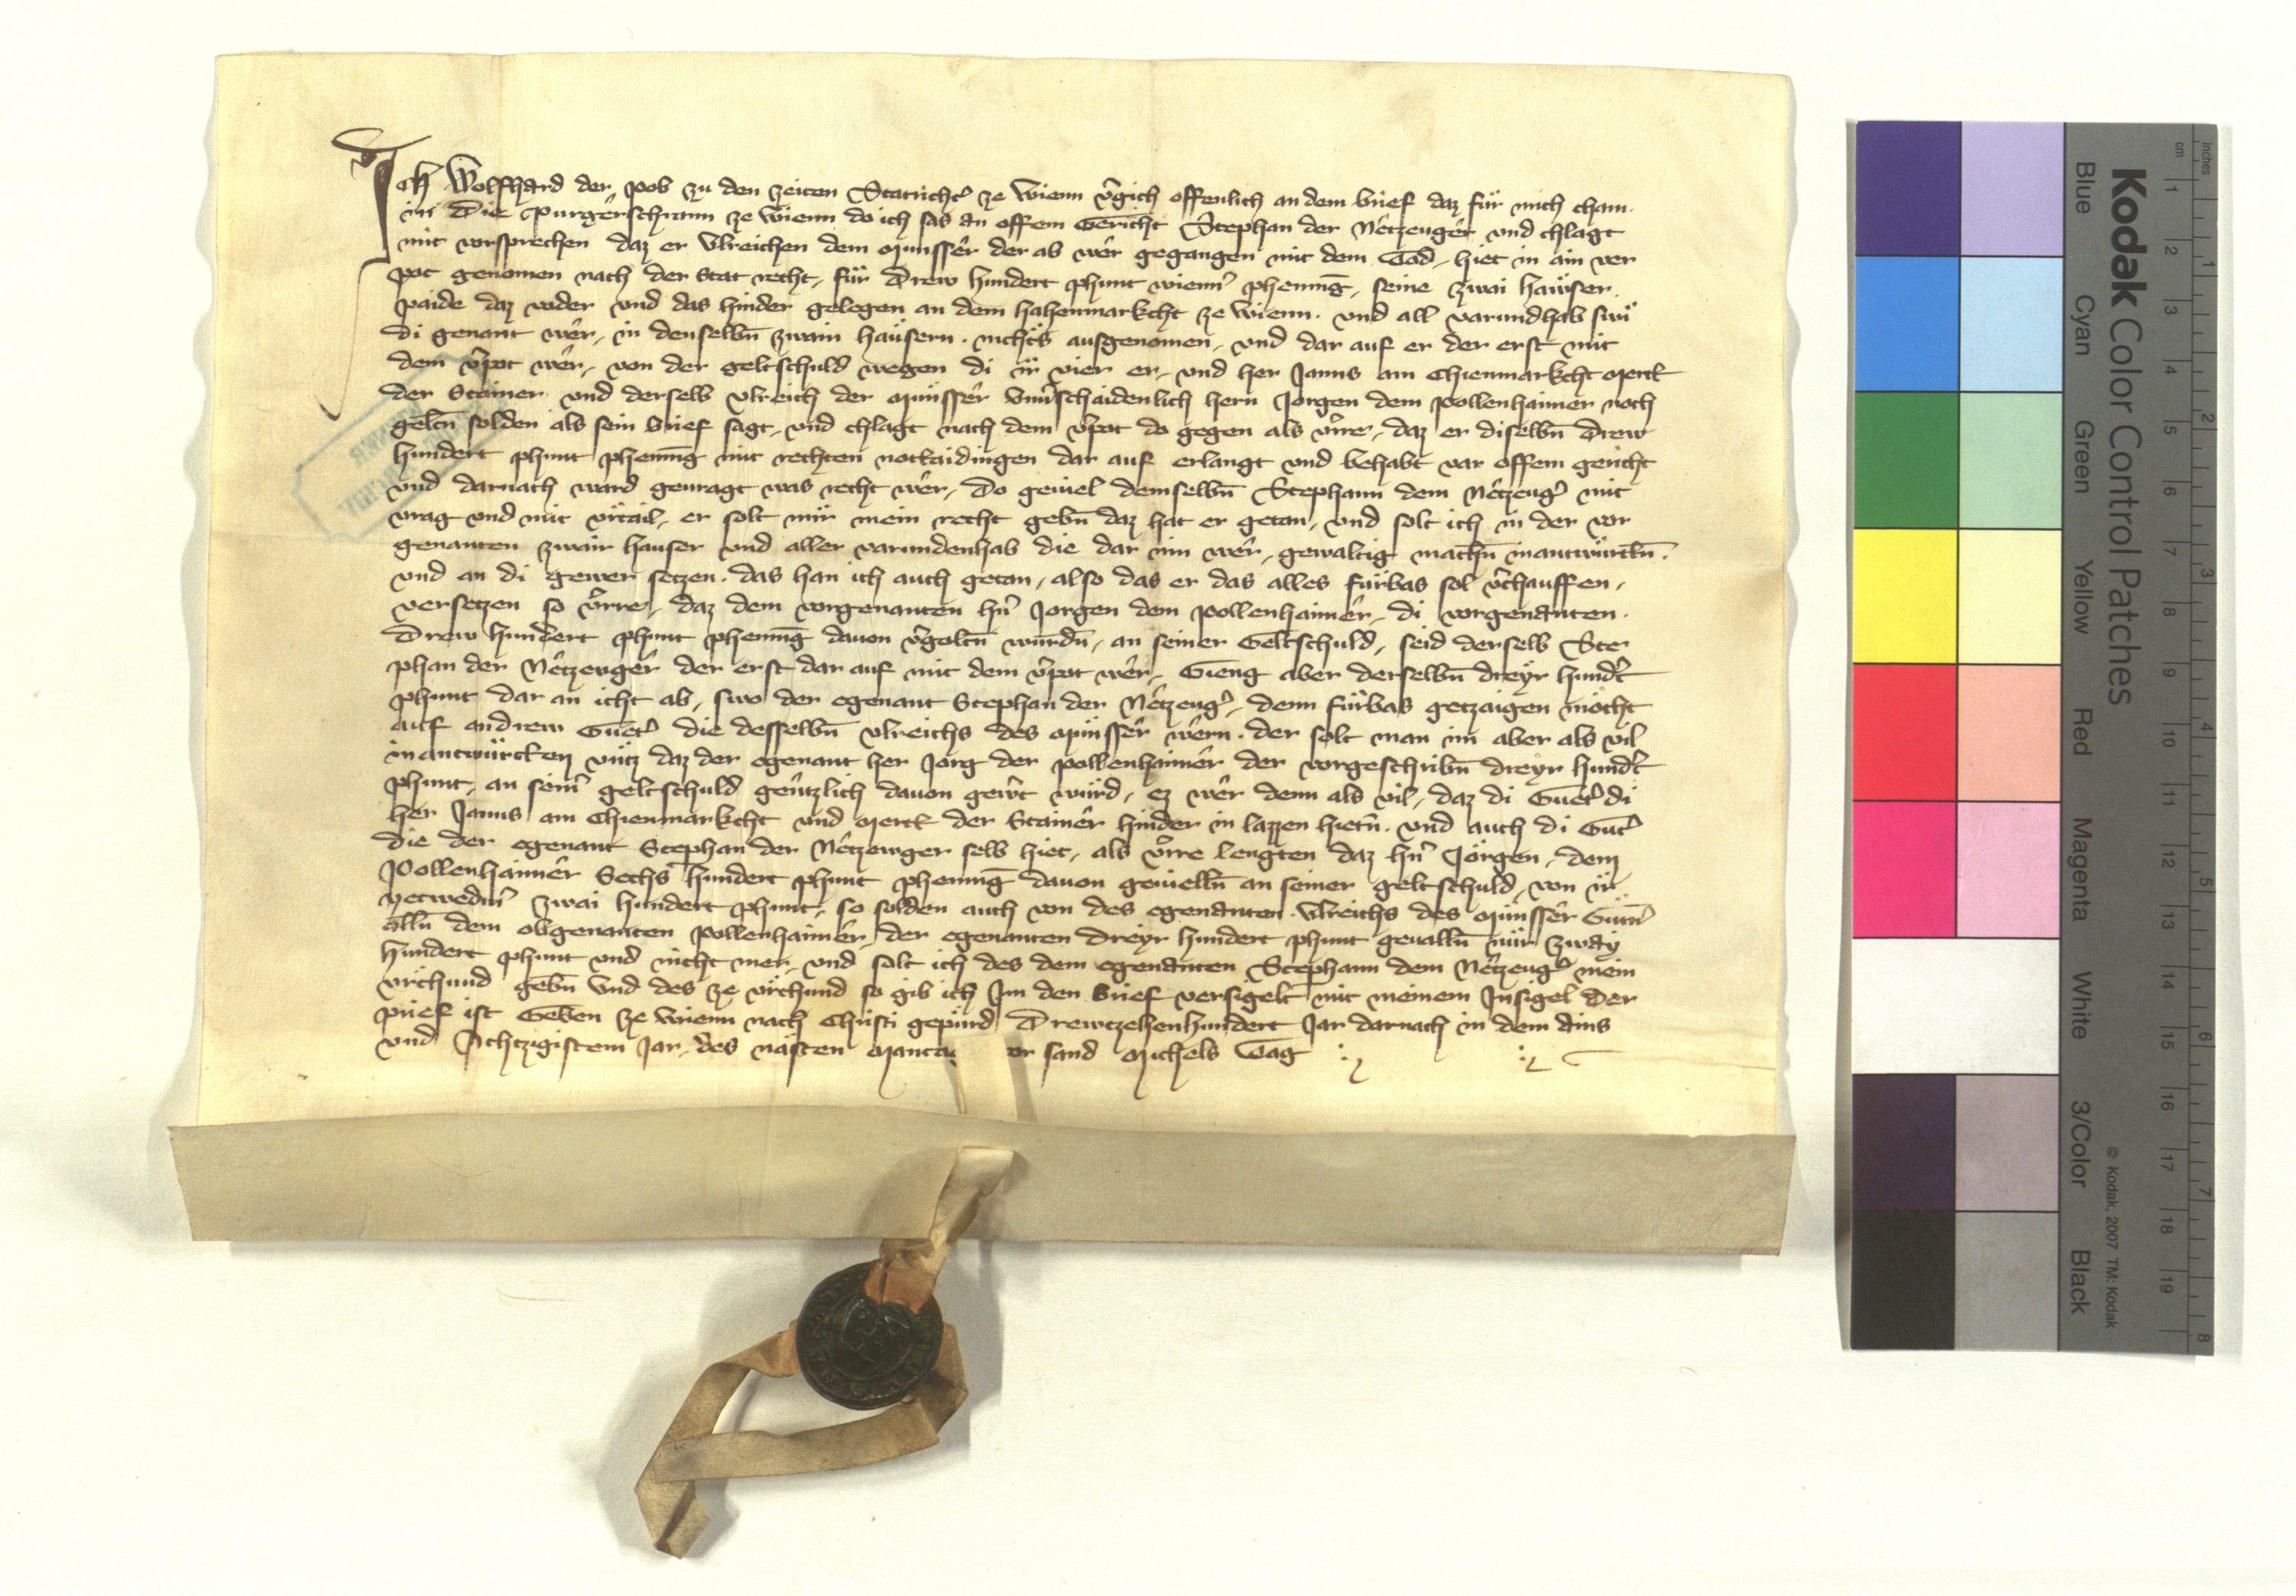 Ich Wolfhard der Pob zu den zeiten Statricht̉ ze Wienn v̉gich offenlich an dem brief daz für mich cham
in die Purgerschrann ze Wienn do ich sas an offem Gericht Stephan der Netzeuger vnd chlagt
mit vorsprechen daz er Vlreichen dem Münsser der ab wer gegangen mit dem Tod, hiet in ain ver
pot genomen nach der Stat recht, für drew hundert phunt wienn̉ phenning, seine zwai hawser
paide daz voder vnd das hinder gelegen an dem hahenmarkcht ze Wienn vnd all varundhab swi
di genant wer, in denselbn̄ zwain hawsern nichts ausgenomen, vnd dar auf er der erst mit
dem v̉pot wer, von der geltschuld wegen di ir vier er, vnd her Janns am Chienmarkcht Mertt
der Stainer vnd derselb Vlreich der Münsser vnủschaidenlich hern Jorgen dem Pollenhaimer noch
geltn̄ solden als sein brief sagt, vnd chlagt nach dem v̉pot do gegen als v̉rre, daz er diselbn̄ drew
hundert phunt phenning mit rechten nottaidingen dar auf erlangt vnd behabt var offem gericht
vnd darnach ward geuragt was recht wer, do geuiel demselbn̄ Stephann dem Netzeug̉ mit
vrag vnd mit vrtail, er solt mir mein recht gebn̄ daz hat er getan, vnd solt ich in der vor
genanten zwair hauser vnd aller varundenhab die dar inn wer, gewaltig machn̄ inantwurtn̄
vnd an di gewer setzen. das han ich auch getan, also das er das alles fürbas sol v̉chauffen,
versetzen so v̉rre, daz dem vorgenanten hn̉ Jorgen dem Pollenhaimer, di vorgenanten
drew hundert phunt phenning dauon v̉goltn̄ wurdn̄, an seiner Geltschuld, seid derselb Ste
phan der Netzewger der erst dar auf mit dem v̉pot wer, Gieng aber derselbn̄ dreyr hund̉t
phunt dar an icht ab, swo der egenant Stephan der Netzeug̉, denn fürbas getzaigen möcht
auf andrew Guet̉ die desselbn̄ Vlreichs des Münsser wern. der solt man im aber als vil
inantwürtten vntz daz der egenant her Jorg der Pollenhaimer der vorgeschribn̄ dreyr hund̉t
phunt, an sein̉ geltschuld gentzlich dauon gewert würd, ez wer denn als vil, daz di Guet̉ di
her Janns am Chienmarkcht vnd Mertt der Stainer hinder in lazzen hietn̄. vnd auch di Gut̉
die der egenant Stephan der Netzewger selb hiet, als v̉rre lengten daz hn̉ Jörgen, dem
Pollenhaimer Sechs hundert phunt phenning dauon geuielln̄ an seiner geltschuld, von ir
yetwedm̉ zwai hundert phunt, so solden auch von des egenanten Vlreichs des Münsser Gütn̉
alln̄ dem obgenanten Pollenhaimer, der egenanten dreyr hundert phunt geualln̄ nür zway
hundert phunt vnd nicht mer, vnd solt ich des dem egenanten Stephann dem Netzeug̉ mein
vrchund gebn̄ vnd des ze vrchund so gib ich Im den brief versigelt mit meinem Insigel der
prief ist Geben ze Wienn nach Christi gepürd Drewtzehenhundert Jar darnach in dem ains
vnd Achtzigistem Jar, des nästen Manta or sand Michels Tag
Kodak Color Control Patches
Blue Cyan Green Yellow Red Magenta White 3/Color Black
© Kodak, 2007 TM: Kodak
cm 1 2 3 4 5 6 7 8 9 10 11 12 13 14 15 16 17 18 19
inches 1 2 3 4 5 6 7 8